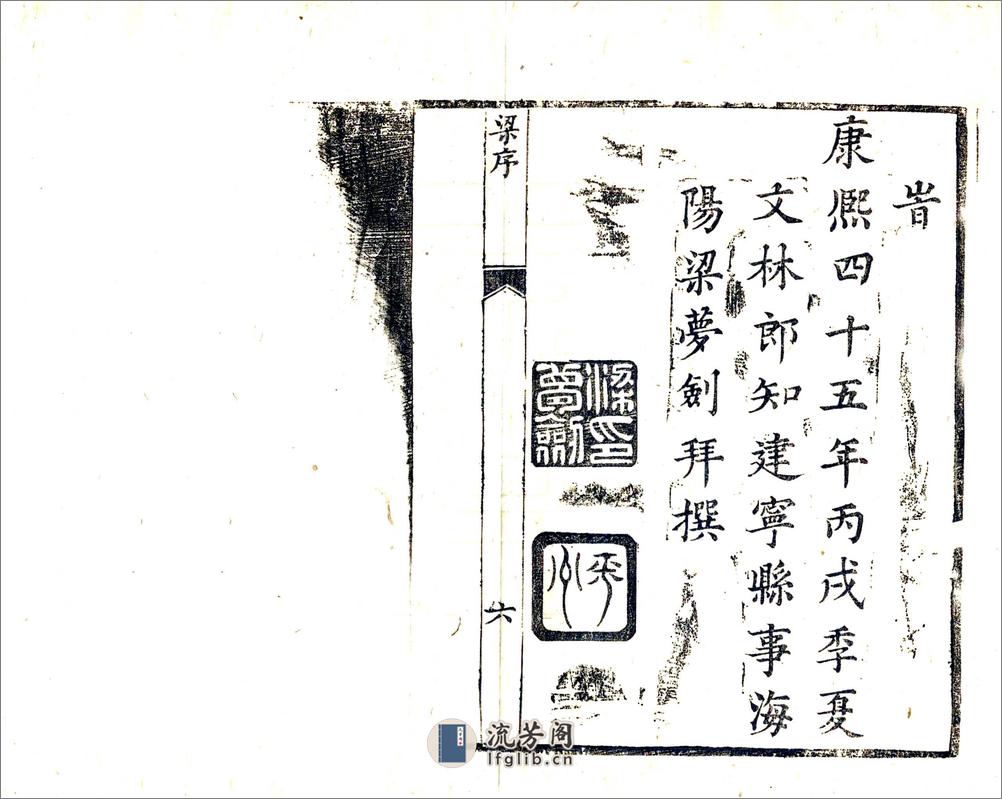 旹
康熙四十五年丙戌季夏
文林郎知建寧縣事海
陽梁夢劍拜撰
梁印
夢劍
梁序
六
流芳阁
lfglib.cn